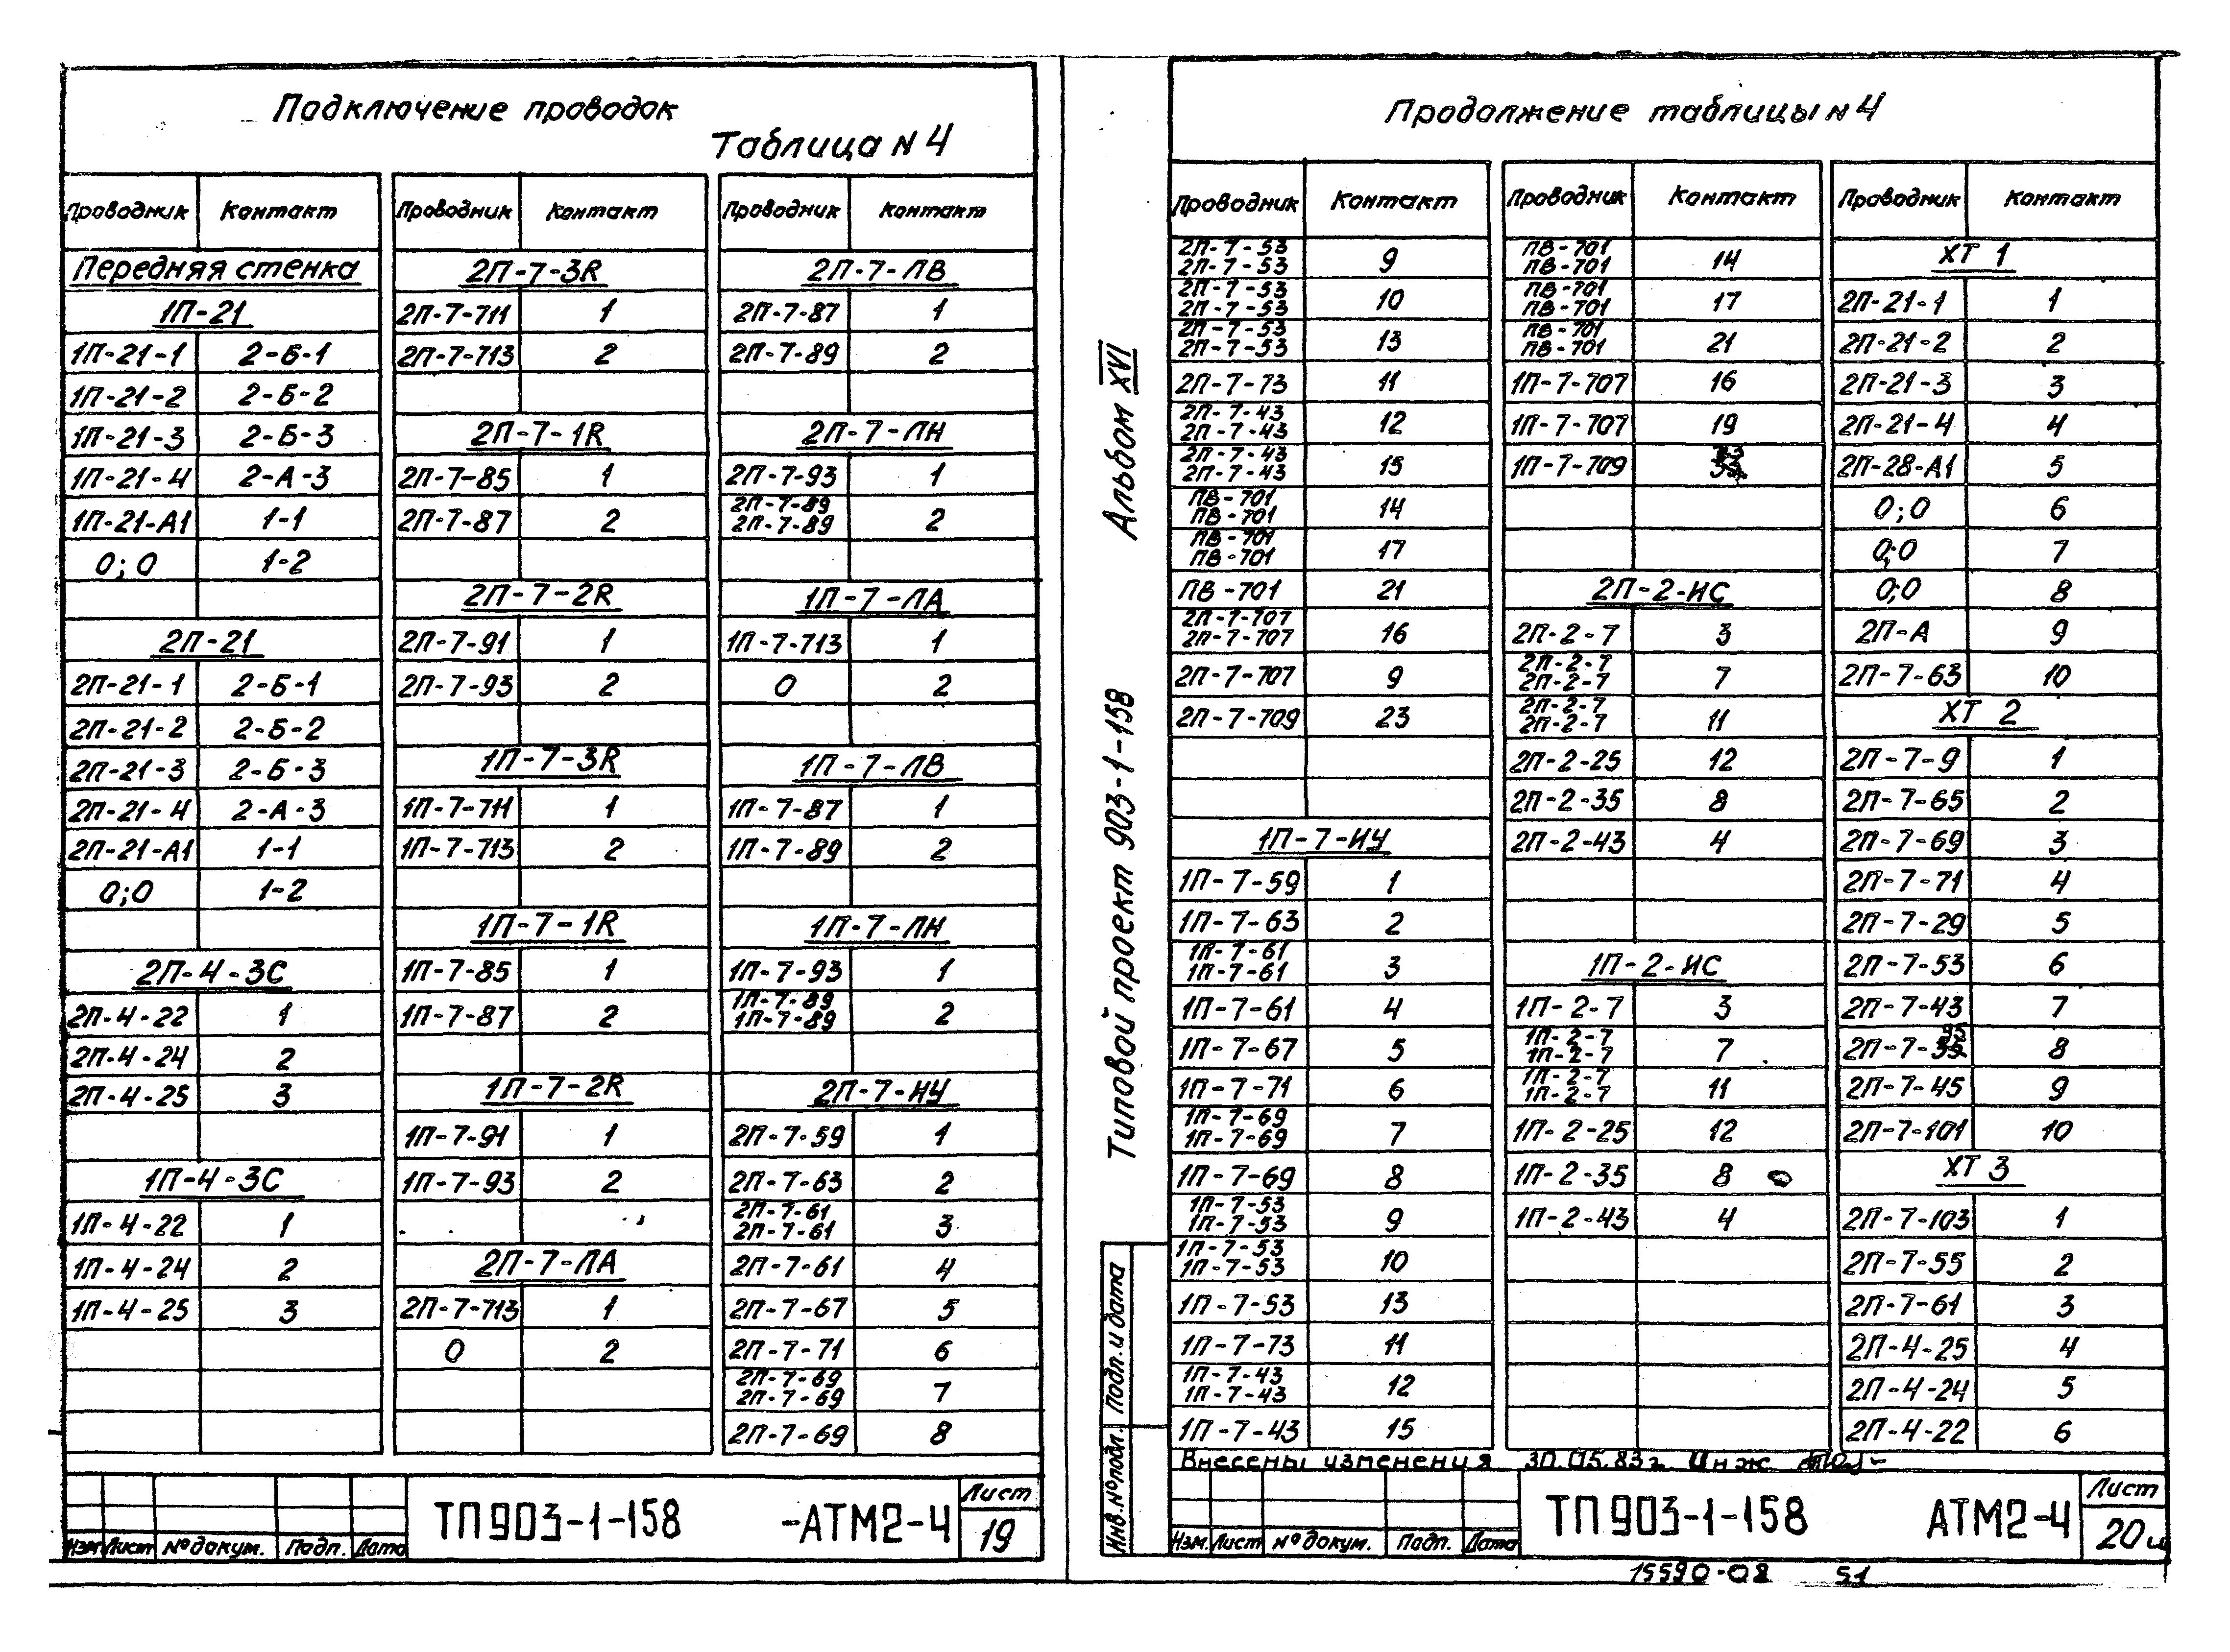 Подключение проводок
Таблица N 4
Проводник Контакт
Передняя стенка
1П-21
1П-21-1 2-Б-1
1П-21-2 2-Б-2
1П-21-3 2-Б-3
1П-21-4 2-А-3
1П-21-А1 1-1
0;0 1-2
2П-21
2П-21-1 2-Б-1
2П-21-2 2-Б-2
2П-21-3 2-Б-3
2П-21-4 2-А-3
2П-21-А1 1-1
0;0 1-2
2П-4-3С
2П-4-22 1
2П-4-24 2
2П-4-25 3
1П-4-3С
1П-4-22 1
1П-4-24 2
1П-4-25 3
Проводник Контакт
2П-7-3R
2П-7-711 1
2П-7-713 2
2П-7-1R
2П-7-85 1
2П-7-87 2
2П-7-2R
2П-7-91 1
2П-7-93 2
1П-7-3R
1П-7-711 1
1П-7-713 2
1П-7-1R
1П-7-85 1
1П-7-87 2
1П-7-2R
1П-7-91 1
1П-7-93 2
2П-7-ЛА
2П-7-713 1
0 2
Проводник Контакт
2П-7-ЛВ
2П-7-87 1
2П-7-89 2
2П-7-ЛН
2П-7-93 1
2П-7-89
2П-7-89 2
1П-7-ЛА
1П-7-713 1
0 2
1П-7-ЛВ
1П-7-87 1
1П-7-89 2
1П-7-ЛН
1П-7-93 1
1П-7-89
1П-7-89 2
2П-7-ИУ
2П-7-59 1
2П-7-63 2
2П-7-61
2П-7-61 3
2П-7-61 4
2П-7-67 5
2П-7-71 6
2П-7-69
2П-7-69 7
2П-7-69 8
Изм Лист № докум. Подп. Дата
ТП903-1-158 -АТМ2-4
Лист
19
Альбом XVI
Типовой проект 903-1-158
Подп. и дата
Инв. № подл.
Продолжение таблицы N 4
Проводник Контакт
2П-7-53
2П-7-53 9
2П-7-53
2П-7-53 10
2П-7-53
2П-7-53 13
2П-7-73 11
2П-7-43
2П-7-43 12
2П-7-43
2П-7-43 15
ПВ-701
ПВ-701 14
ПВ-701
ПВ-701 17
ПВ-701 21
2П-7-707
2П-7-707 16
2П-7-707 9
2П-7-709 23
1П-7-ИУ
1П-7-59 1
1П-7-63 2
1П-7-61
1П-7-61 3
1П-7-61 4
1П-7-67 5
1П-7-71 6
1П-7-69
1П-7-69 7
1П-7-69 8
1П-7-53
1П-7-53 9
1П-7-53
1П-7-53 10
1П-7-53 13
1П-7-73 11
1П-7-43
1П-7-43 12
1П-7-43 15
Проводник Контакт
ПВ-701
ПВ-701 14
ПВ-701
ПВ-701 17
ПВ-701
ПВ-701 21
1П-7-707 16
1П-7-707 19
1П-7-709
2П-2-ИС
2П-2-7 3
2П-2-7
2П-2-7 7
2П-2-7
2П-2-7 11
2П-2-25 12
2П-2-35 8
2П-2-43 4
1П-2-ИС
1П-2-7 3
1П-2-7
1П-2-7 7
1П-2-7
1П-2-7 11
1П-2-25 12
1П-2-35 8
1П-2-43 4
Проводник Контакт
ХТ 1
2П-21-1 1
2П-21-2 2
2П-21-3 3
2П-21-4 4
2П-28-А1 5
0;0 6
0;0 7
0;0 8
2П-А 9
2П-7-63 10
ХТ 2
2П-7-9 1
2П-7-65 2
2П-7-69 3
2П-7-71 4
2П-7-29 5
2П-7-53 6
2П-7-43 7
8
2П-7-45 9
2П-7-101 10
ХТ 3
2П-7-103 1
2П-7-55 2
2П-7-61 3
2П-4-25 4
2П-4-24 5
2П-4-22 6
Внесены изменения 30.05.83г. Инж
Изм. Лист № докум. Подп. Дата
ТП903-1-158 АТМ2-4
Лист
20
15590-02 51